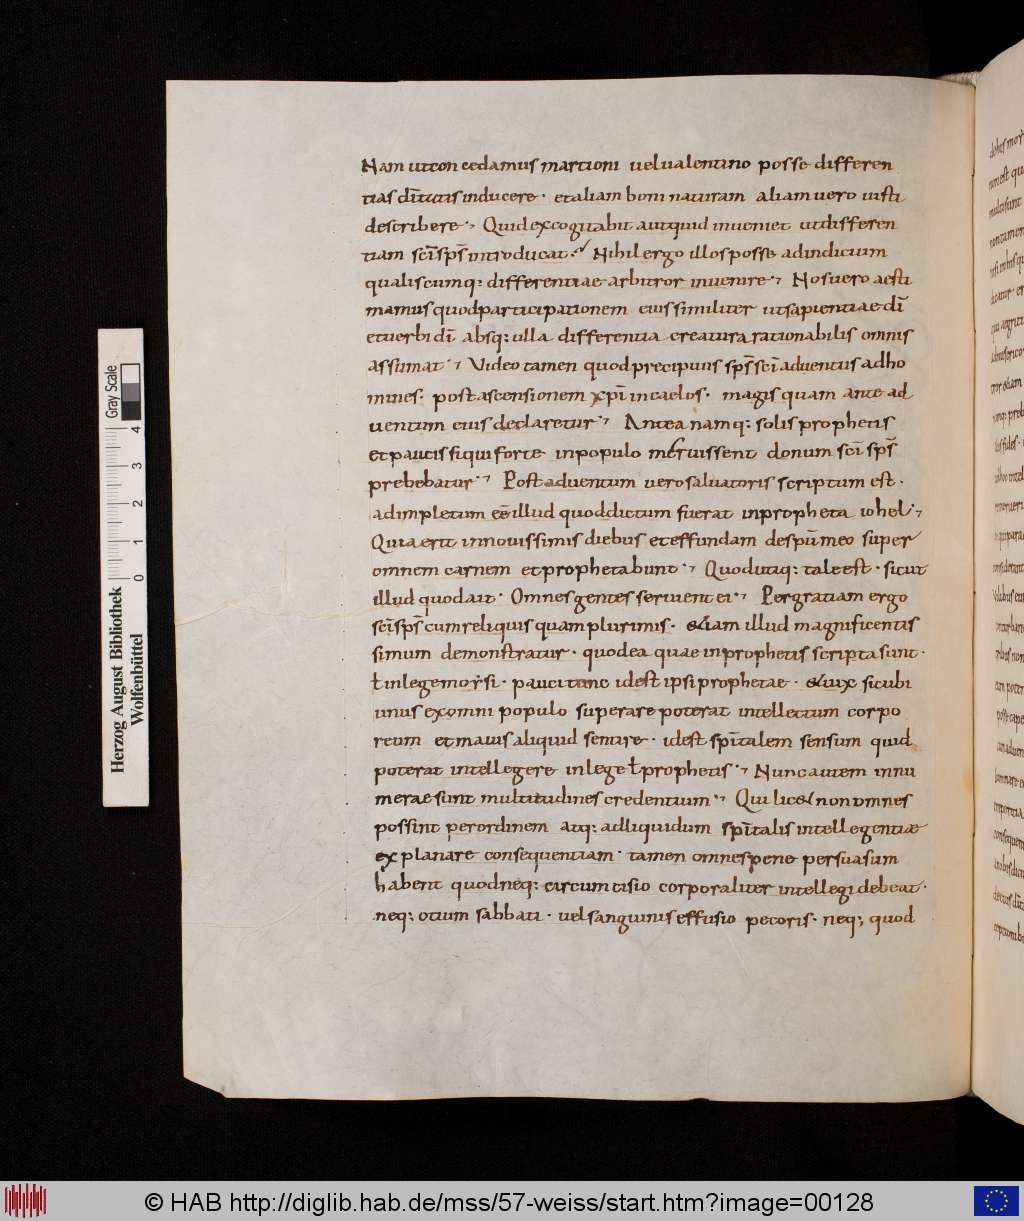 Nam utcon cedamus martioni uelualentino posse differen
tias diūtatis inducere · etaliam boni naturam aliam uero iusti
describere · Quidexcogitabit autquid inueniet utdifferen
tiam sc̄i sp̄s introducat · Nihil ergo illosposse adindicium
qualiscumq: differentiae arbitror inuenire · Nosuero aesti
mamus quodparticipationem eiussimiliter utsapientiae dī
etuerbi dī absq: ulla differentia creatura rationabilis omnis
assumat · Video tamen quodprecipuus sp̄s sc̄i aduentus adho
mines · postascensionem xp̄i incaelos · magis quam ante ad
uentum eius declaretur · Antea namq: solis prophetis
etpaucis siqui forte inpopulo meruissent donum sc̄i sp̄s
prebebatur · Postaduentum uero saluatoris scriptum est ·
adimpletum eē illud quoddictum fuerat inpropheta iohel ·
Quia erit innouissimis diebus eteffundam desp̄u meo super
omnem carnem etprophetabunt · Quodutiq: tale est · sicut
illud quodait · Omnes gentes seruient ei · Pergratiam ergo
sc̄i sp̄s cumreliquis quamplurimis · &iam illud magnificentis
simum demonstratur · quodea quae inprophetis scripta sunt ·
ł inlege moysi · pauci tunc idest ipsi prophetae · &uix sicubi
unus exomni populo superare poterat intellectum corpo
reum etmaius aliquid sentire · idest sp̄italem sensum quid
poterat intellegere inlege ł prophetis · Nunc autem innu
merae sunt multitudines credentium · Qui lic& non omnes
possint perordinem atq: adliquidum sp̄italis intellegentiæ
explanare consequentiam · tamen omnespene persuasum
habent quodneq: circumcisio corporaliter intellegi debeat ·
neq: otium sabbati · uel sanguinis effusio pecoris · neq; quod
Herzog August Bibliothek
Wolfenbüttel
Gray Scale
0 1 2 3 4
© HAB http://diglib.hab.de/mss/57-weiss/start.htm?image=00128